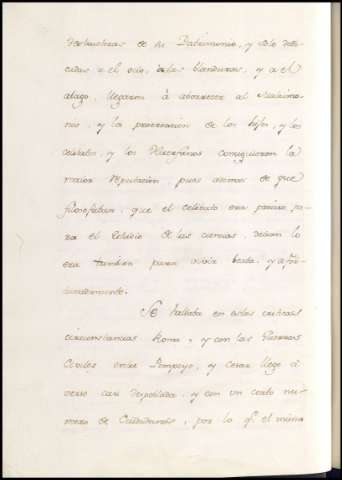 destructoras de su Patrimonio, y solo dedi-
cadas a el ocio, a las blanduras, y a el
alago, llegaron à aborrecer al Matrimo-
nio, y la procreacion de los hijos, y los
celibatos, y los Huerfanos consiguieron la
maior reputacion, pues ademas de que
filosofaban, que el celibato era preciso pa-
ra el Estudio de las ciencias, decian lo
era tambien para vivir beata, y afor-
tunadamente.
Se hallaba en estas criticas
circunstancias Roma, y con las Guerras
Civiles entre Pompeyo, y Cesar llegó à
verse casi despoblada, y con un corto nu-
mero de Ciudadanos, por lo q.e el mismo